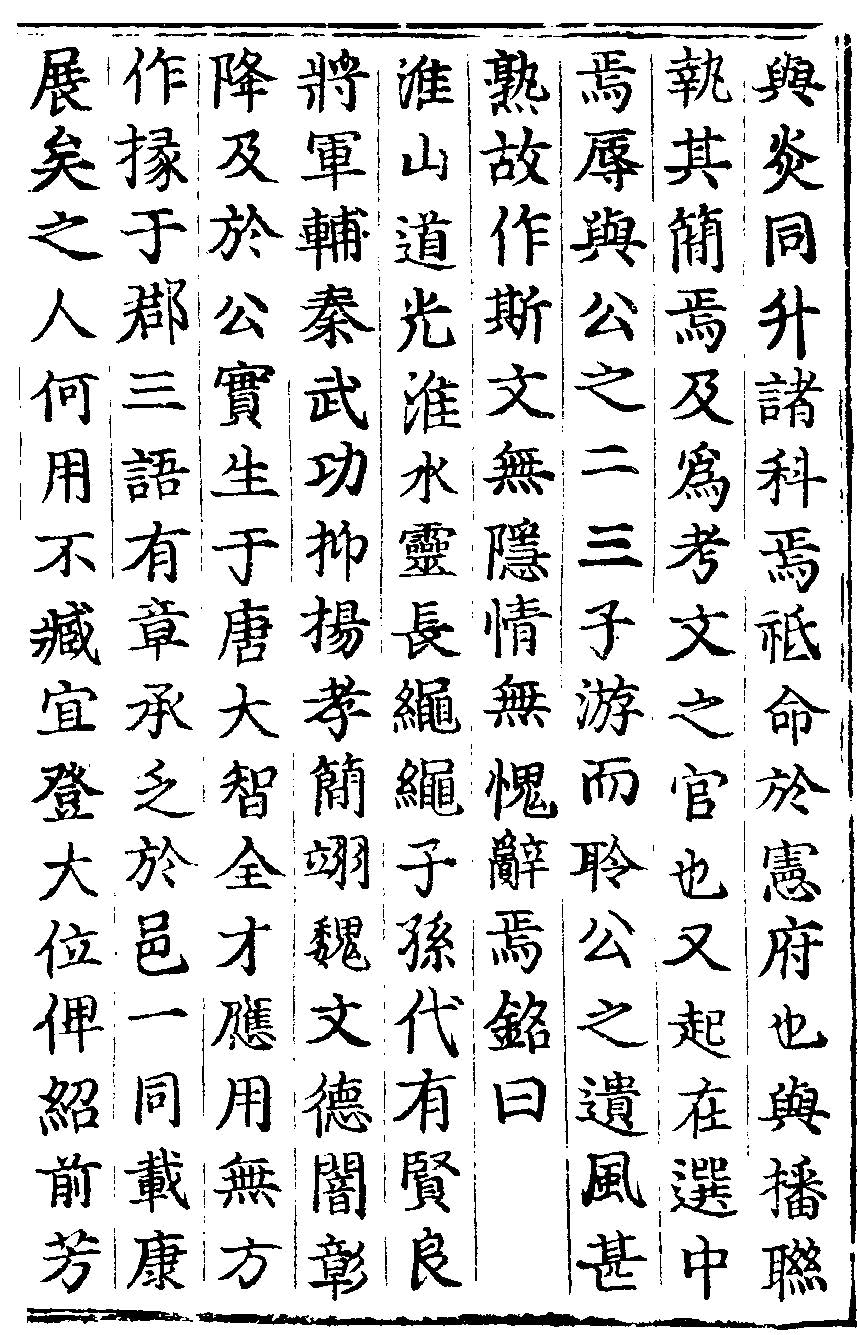 與炎同升諸科焉祗命於憲府也與播聯
執其簡焉及爲考文之官也又起在選中
焉辱與公之二三子游而聆公之遺風甚
熟故作斯文無隱情無愧辭焉銘曰
淮山道光淮水靈長繩繩子孫代有賢良
將軍輔秦武功抑揚孝簡翊魏文德闇彰
降及於公實生于唐大智全才應用無方
作掾于郡三語有章承乏於邑一同載康
展矣之人何用不臧宜登大位俾紹前芳